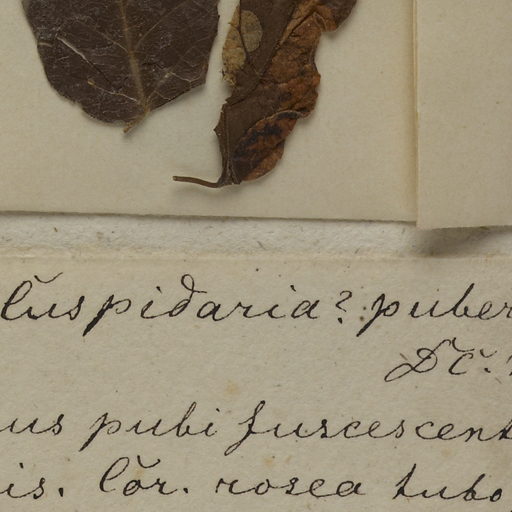 Cuspidaria? puber
DC.
us pubi fuscescent
is. Cor. rosea tubo